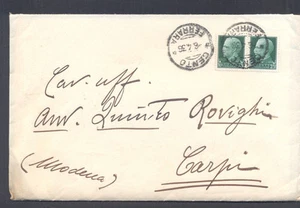 CENTO
FERRARA
Cav. Uff.
Avv. Quinto Rovighi
Carpi
(Modena)